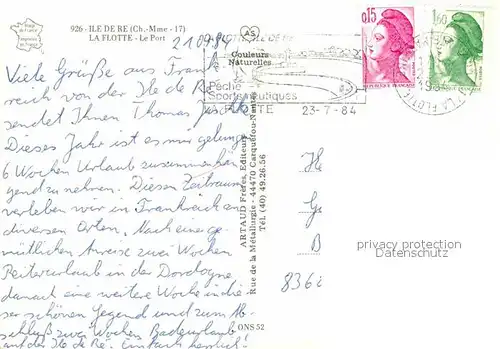 926 - ILE DE RE (Ch.-Mme - 17)
LA FLOTTE - Le Port
21.07.84
Viele Grüße aus Frank-
reich von der Ile de Ré
sendet Ihnen Thomas
Dieses Jahr ist es mir gelungen
6 Wochen Urlaub zusammenhän-
gend zu nehmen. Diesen Zeitraum
verleben wir in Frankreich an
diversen Orten. Nach einer ge-
mütlichen Anreise zwei Wochen
Reiterurlaub in der Dordogne
danach eine weitere Woche in die-
ser schönen Gegend und zum Ab-
schluß zwei Wochen Badeurlaub
auf der Ile de Ré. Einfach herrlich!
AS
Couleurs
Naturelles
Pêche
Sports nautiques
LA FLOTTE
23-7-84
ARTAUD Frères, Editeurs
Rue de la Métallurgie - 44470 Carquefou-Nantes
Tél. (40) 49.26.56
ONS 52
0,15
1,60
LA FLOTTE
1984
H
G
B
836
privacy protection
Datenschutz